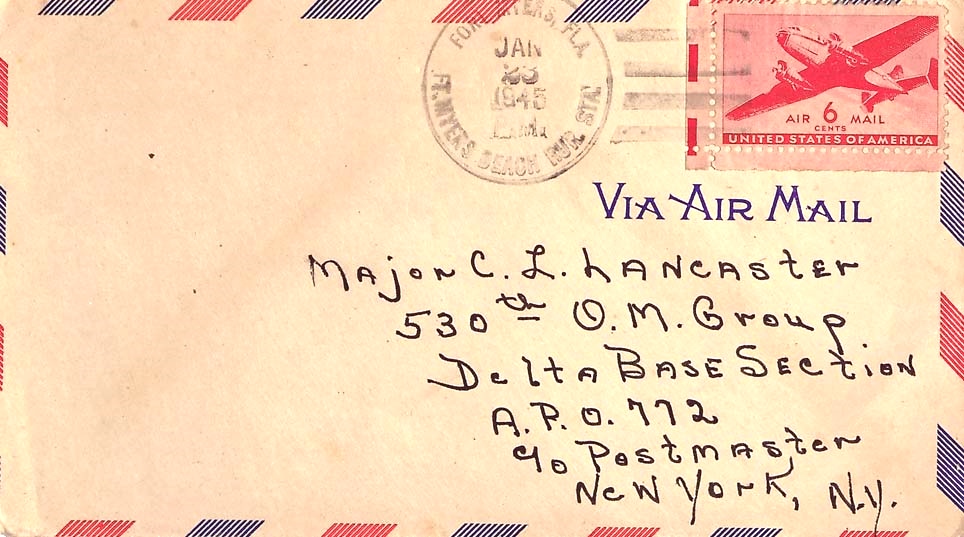 FORT MYERS, FLA.
JAN
23
1945
FT. MYERS BEACH RUR. STA.
AIR 6 MAIL
CENTS
UNITED STATES OF AMERICA
VIA AIR MAIL
Major C. L. LANCASTER
530th Q.M. Group
Delta Base Section
A.P.O. 772
c/o Postmaster
New York, N.Y.